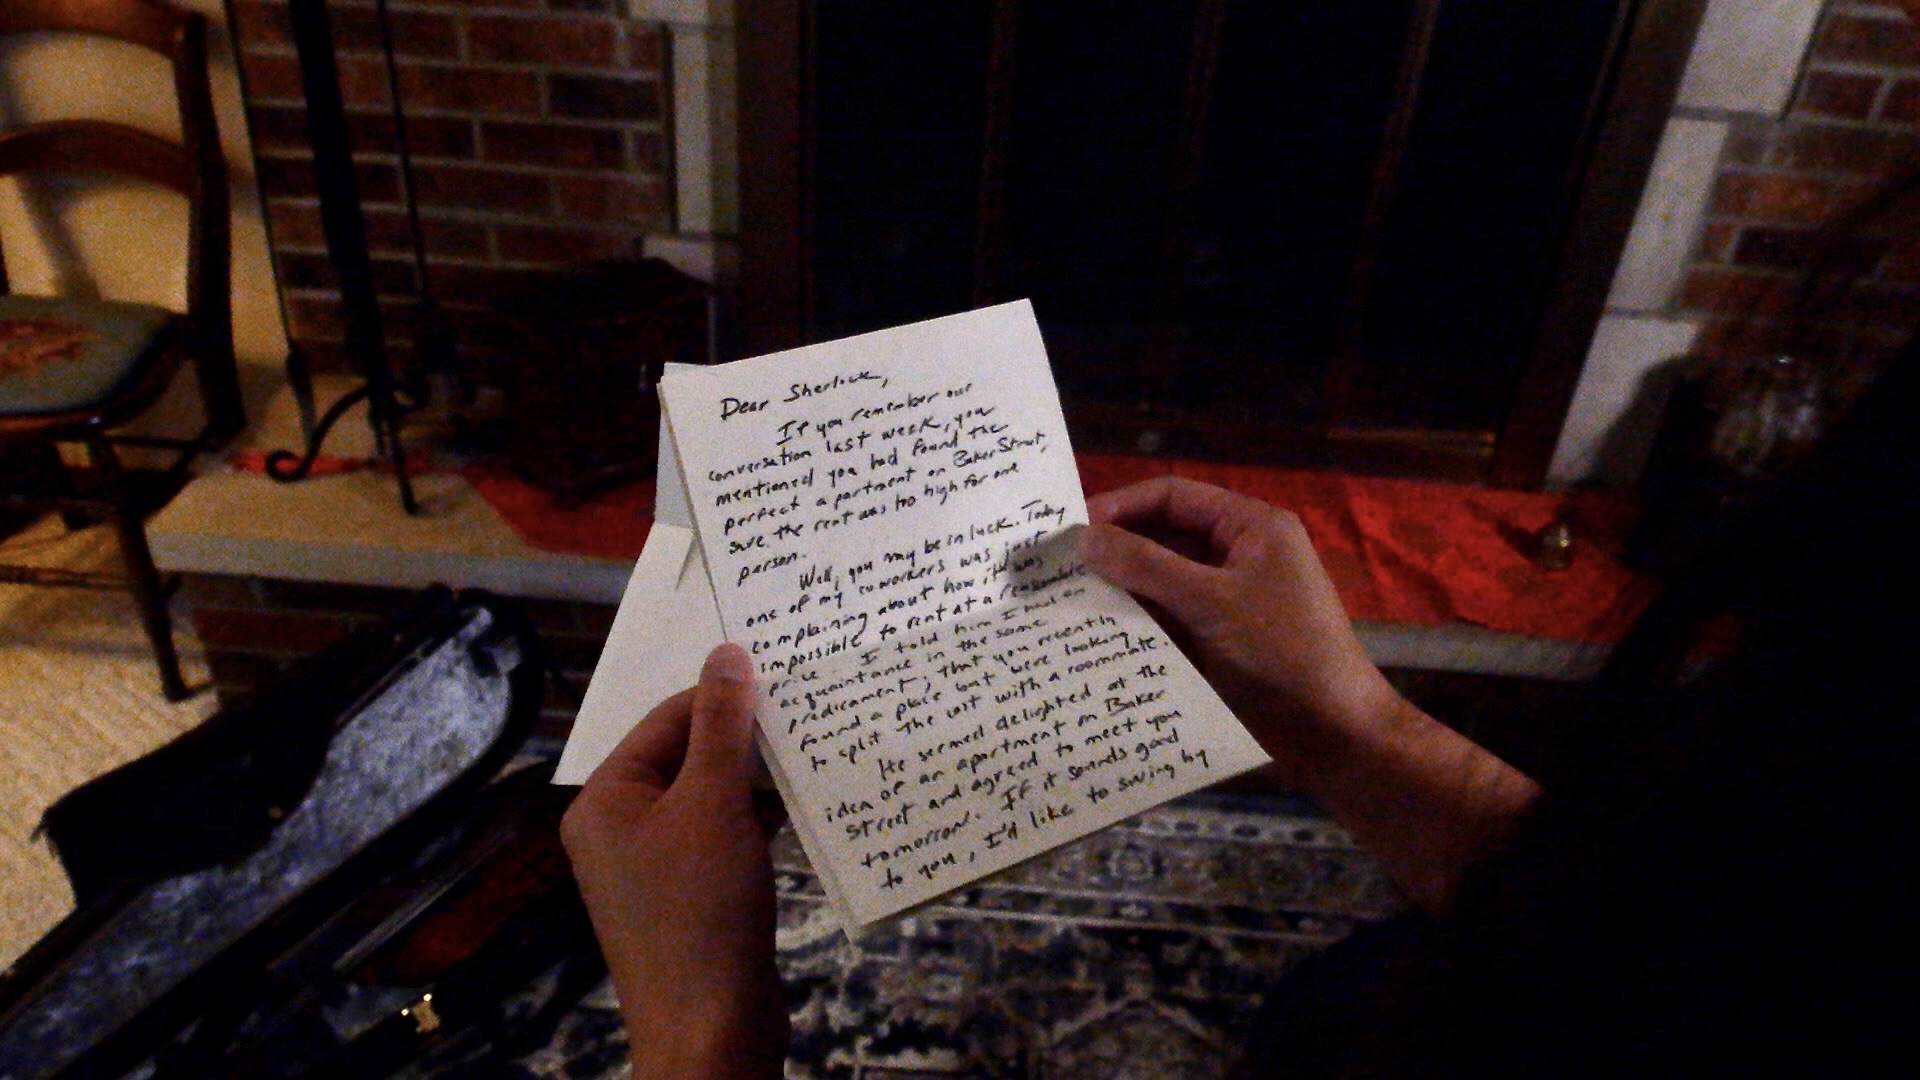 Dear Sherlock,
If you remember our
conversation last week, you
mentioned you had found the
perfect apartment on Baker Street,
sure, the rent was too high for one
person.
Well, you may be in luck. Today
one of my coworkers was just
complaining about how it was
impossible to rent at a reasonable
price. I told him I had an
acquaintance in the same
predicament, that you recently
found a place but were looking
to split the cost with a roommate.
He seemed delighted at the
idea of an apartment on Baker
Street and agreed to meet you
tomorrow. If it sounds good
to you, I'd like to swing by